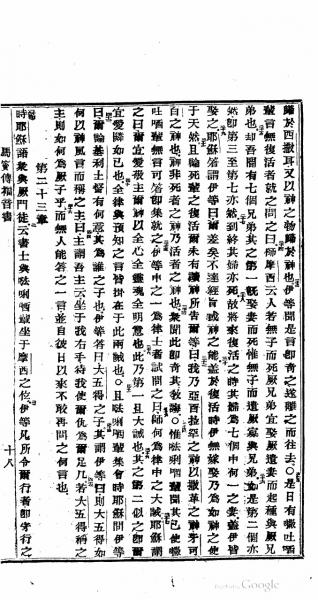 歸於西撒耳又以神之物歸於神也伊等聞是言卽奇之遂離之而往去○是日有
輩言無復活者就問之曰師摩西云人若無子而死厥弟宜娶厥遺妻而起種與厥兄
弟也却吾間有七個兄弟其之第一旣娶妻而死惟無子而遺厥寡與厥兄弟如是第二個亦
然卽第三至第七亦然到終其婦亦死故將來復活之時其婦爲七個中何一之妻蓋伊皆
娶之耶穌答謂伊等曰爾差矣不達經旨神之能蓋於復活時伊無娶乃爲如神之使
于天然且論死輩之復活爾未有讀神所告爾等曰我乃亞百拉亞之神以撒革之神牙可
百之神也神非死者之神乃活者之神也衆聞此卽奇其敎誨○惟𠵽唎哂輩聞其已使
吐哂輩無言可答卽集就之伊等中之一爲律士者試問之曰師何爲律中之大誡耶穌謂
之曰爾宜愛主爾神以全心全靈魂全明意也此乃第一且大誡也其之第二似之卽爾
宜愛隣如已也全律與預知之言皆掛在于此兩誡也○且𠵽唎哂輩集會時耶穌問伊等
曰爾論基利士督有何意其爲誰之子也伊等答曰大五得之子其謂伊等曰則大五得如
何以神風言而稱之主曰主謂吾主云坐于我右手待我使爾仇爲爾足几若大五得稱之
主則如何爲厥子乎而無人能答之一言並自彼日以來不敢再問之何言也
第二十三章
時耶穌語衆與厥門徒云書士與𠵽唎哂輩坐于摩西之位伊等凡所令爾行者卽守行之
馬竇傳福音書
十八
Google